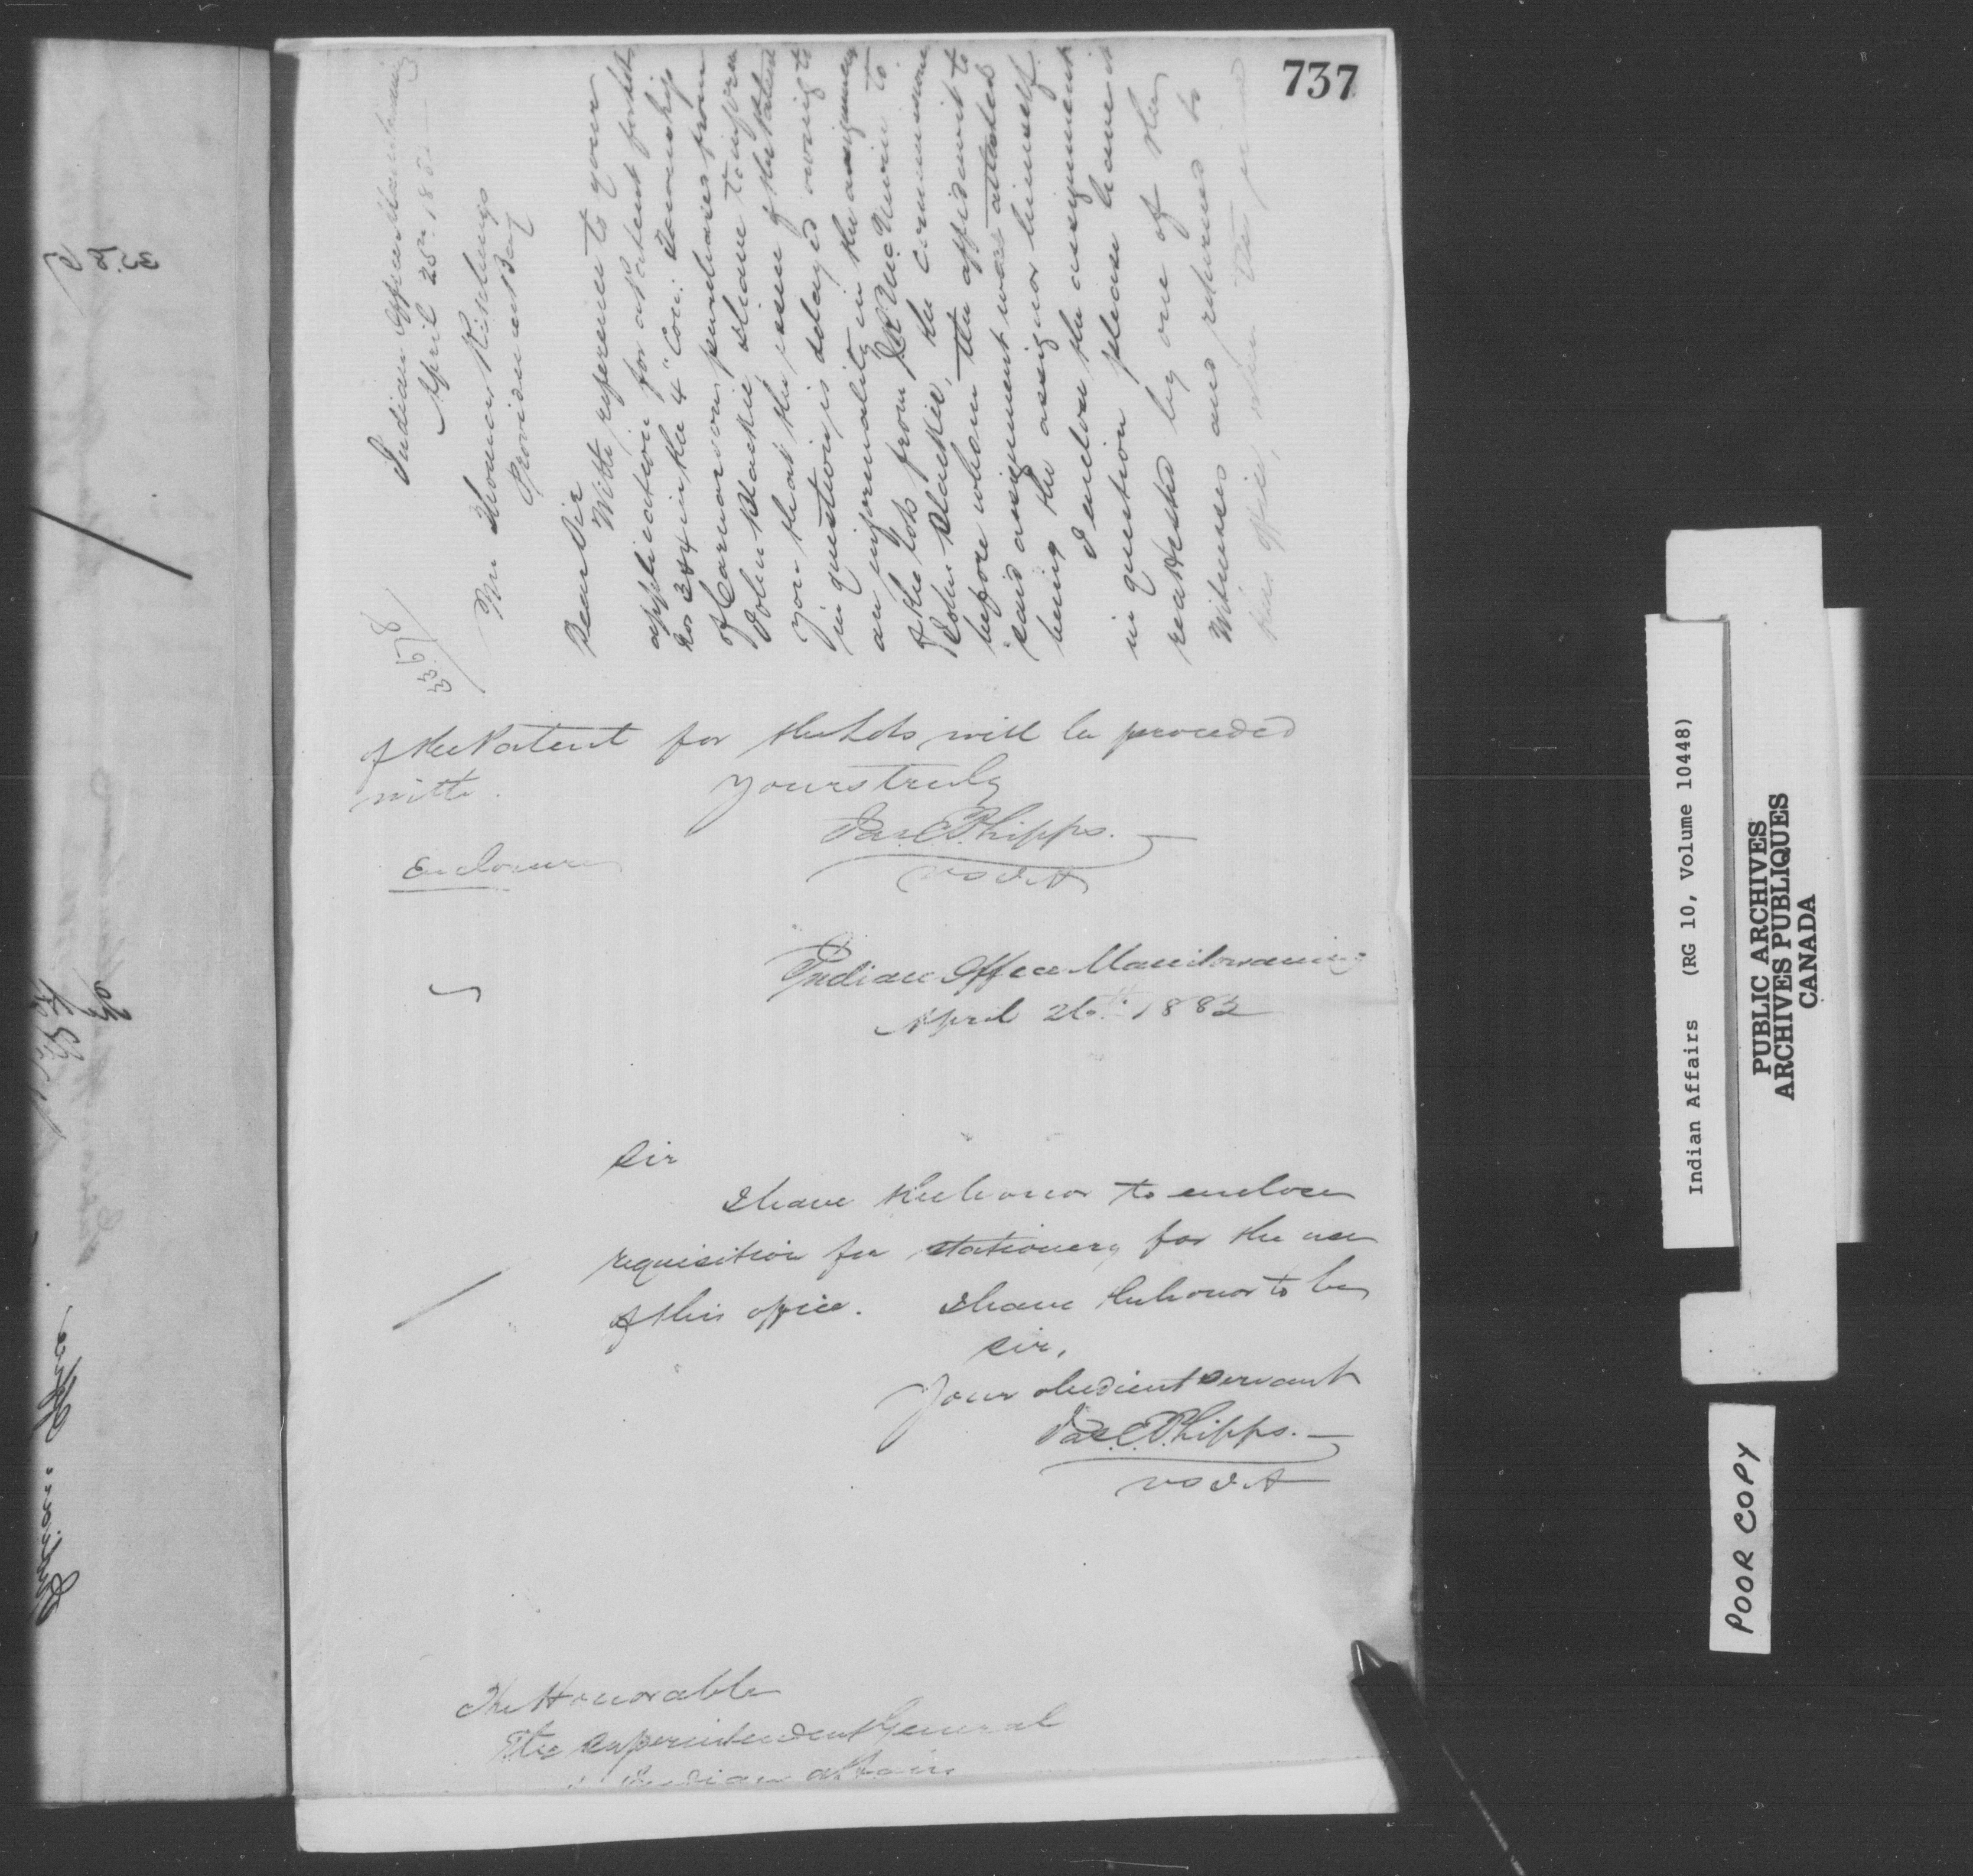 737
Indian Office Manitowaning
April 25th 188
Mr Thomas Kitchings
Providence Bay
Dear Sir
With reference to your
application for a Patent for lots
3 & 4 in the 4" Con: Township
of Carnarvon purchased from
John Slackie, I have to inform
you that the issue of the Patent
in question is delayed owing to
an informality in the assignment
of the lots from Mc Niven to
John Slackie, the commissioner
before whom the affidavit to
said assignment was attested
being the assignor himself.
I enclose the assignment
in question please have it
reattested by one of the
Witnesses and returned to
this office, when the
of the Patent for the Lots will be proceeded
with.
Yours truly
Jas. C. Phipps.
V S I A
Enclosure
Indian Office Manitowaning
April 26th 1882
Sir
I have the honor to enclose
requisition for stationery for the use
of this office. I have the honor to be
Sir,
Your obedient servant
Jas. C. Phipps.
V S I A
The Honorable
The Superintendent General
Indian Affairs
Indian Office
Indian Affairs (RG 10, Volume 10448)
PUBLIC ARCHIVES
ARCHIVES PUBLIQUES
CANADA
POOR COPY